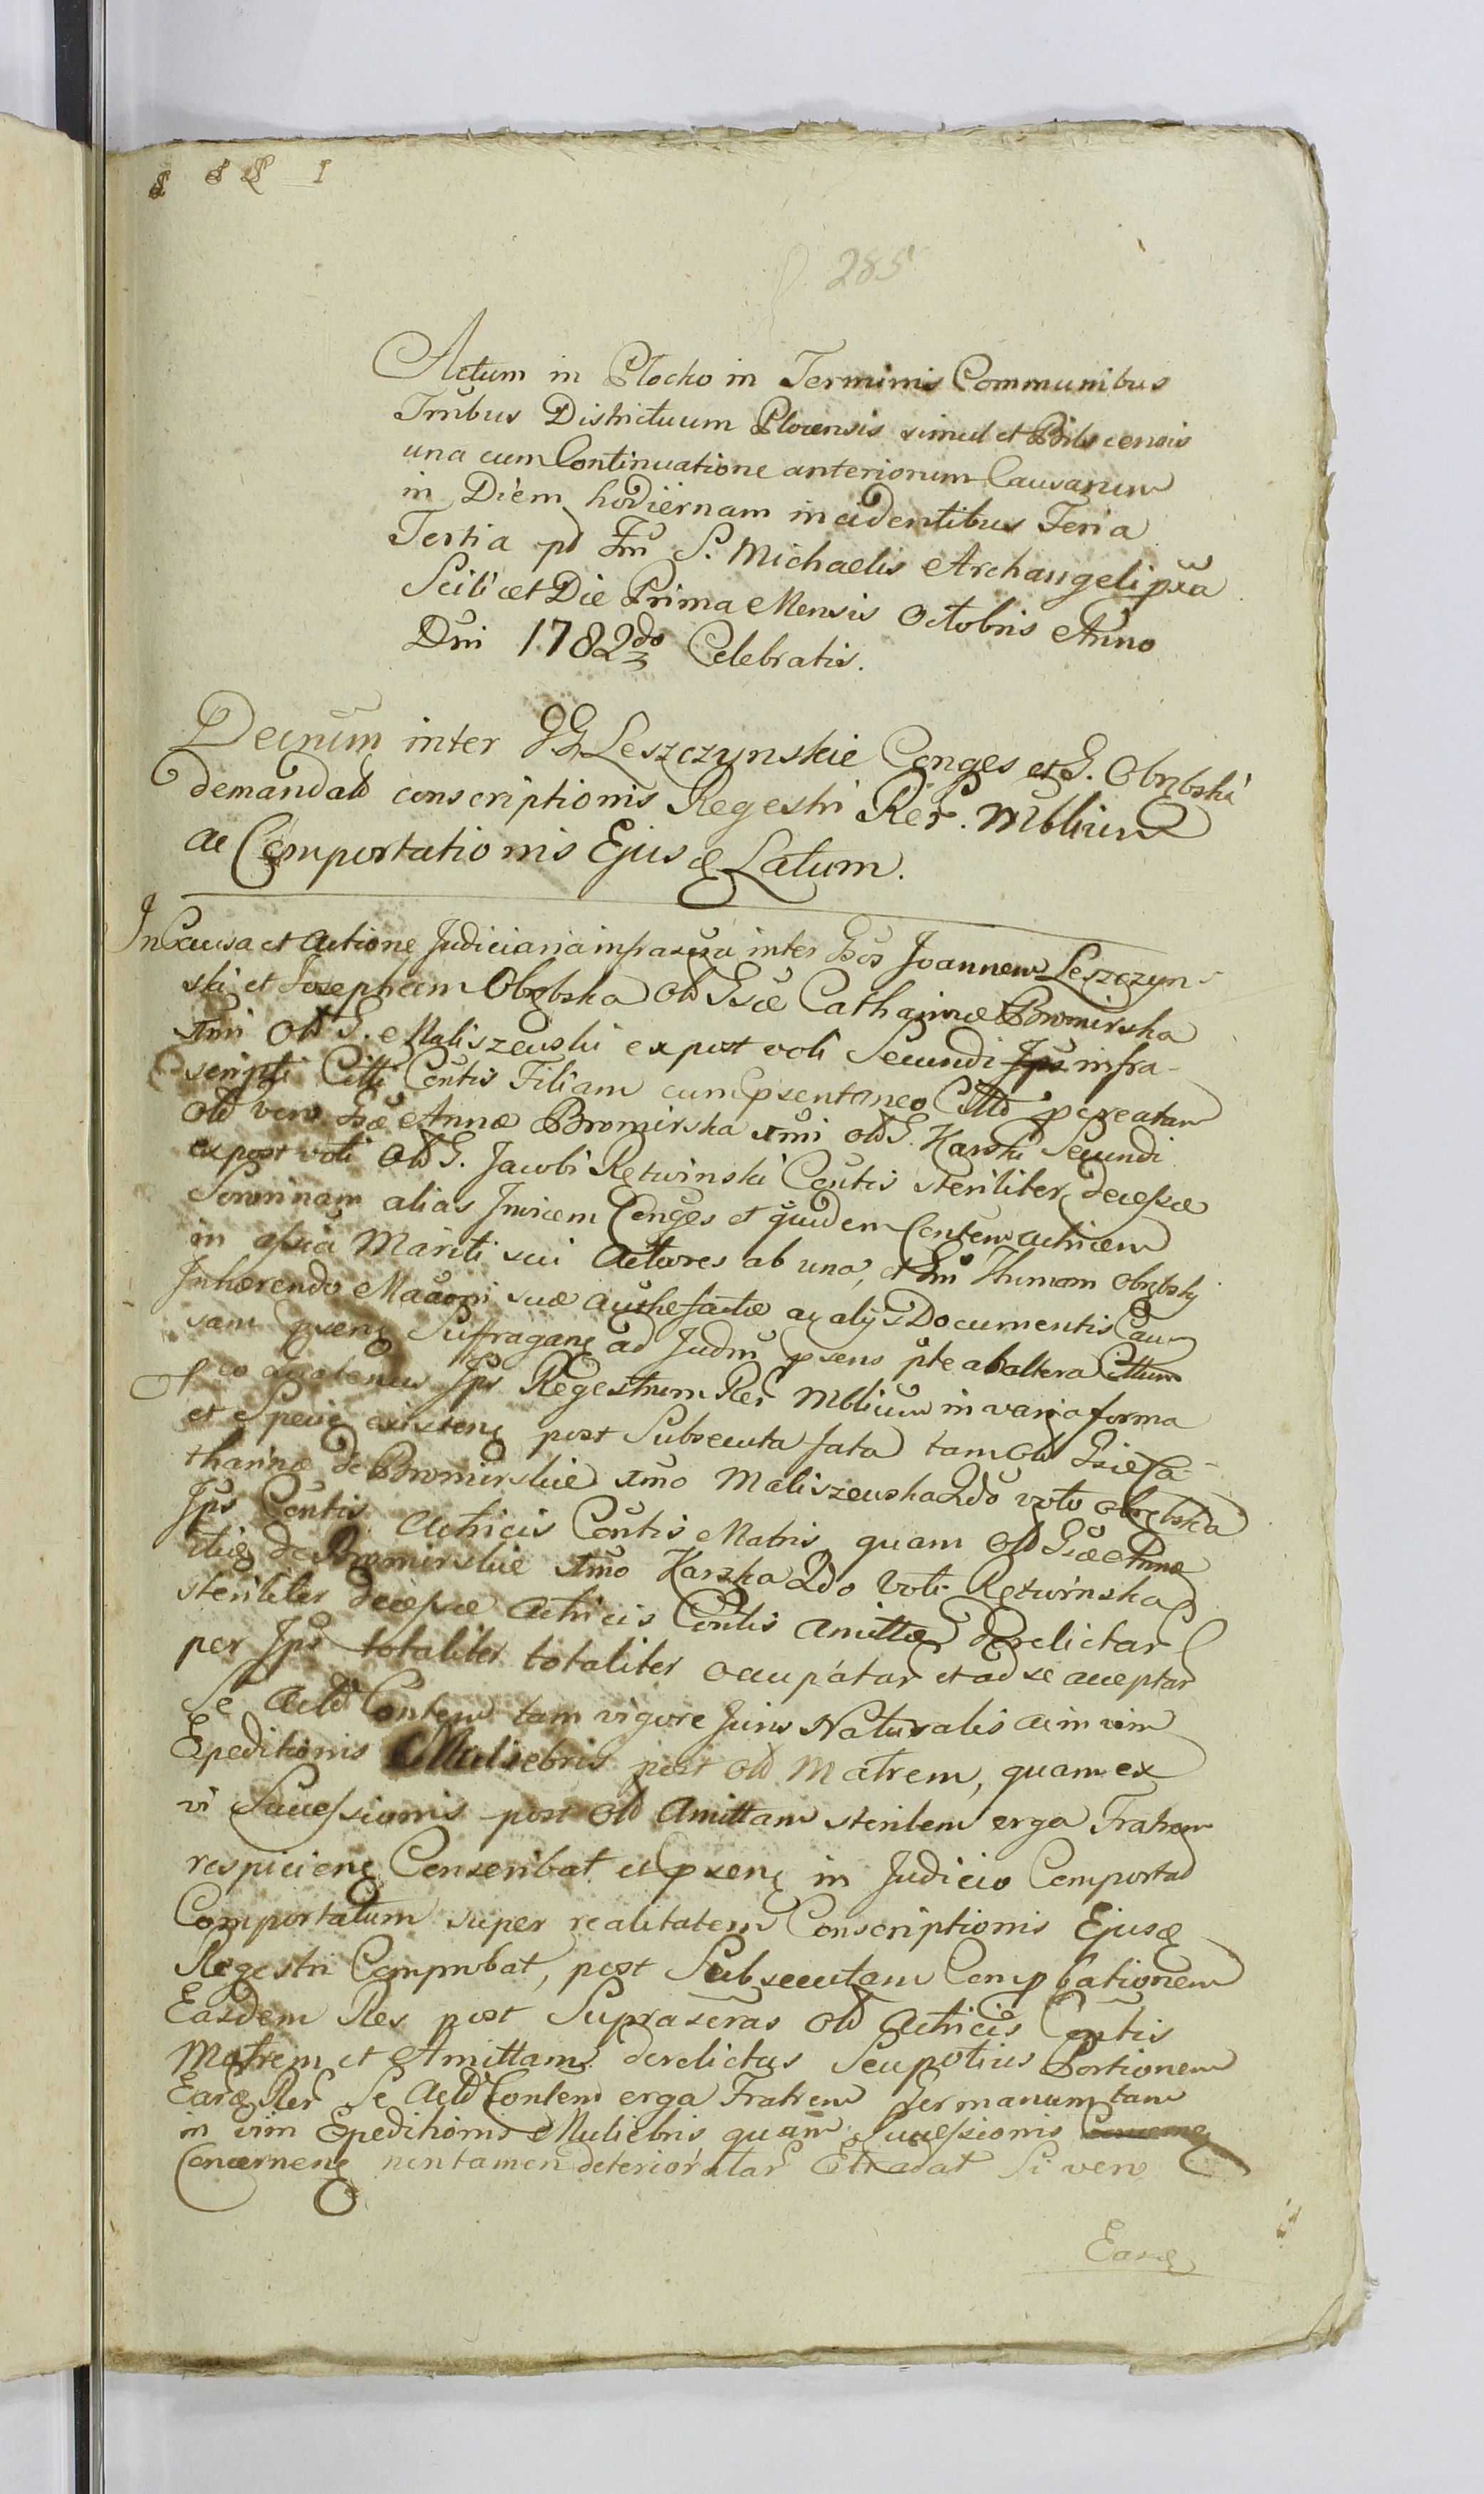 285
Actum in Plocko in Terminis Communibus
Trribus Districtuum Plocensis simul et Bilscensis
una cum Continuatione anteriorum Causarum
in Diem hodiernam incidentibus Feria
Tertia pd Fm S. Michaelis Archangeli pxa
Scilicet Die Prima Mensis Octobris Anno
Dni 1782do Celebratis.
Decrum inter GG Leszczynskie Conges et G. Obrębski
demandato conscriptionis Regestri Rer. Mblium
ac Comportationis Ejusd Latum.
In Causa et Actione Judiciaria infrascra inter Gsos Joannem Leszczyn-
ski et Josepham Obrębska Old Gsae Catharinae Bromirska
1mi Old G. Maliszewski expost voti Secundi infra-
scripti Citti Contis Filiam cum Psentaneo Citto pcreatam
Old vero Gsae Annae Bromirska 1mi Old G. Karski Secundi
expost voti Old G. Jacobi Rętwinski Contis steriliter decessae
alias Invicem Conges et quidem Contem actricem
in assia Mariti sui Actores ab una, et Gm Thomam Obrębski
Inhaerendo suae ac alijs Documentis Cau-
sam psenę Suffraganę ad Judm psens pte ab altera Cittum
eo quatenus Ips Regestrum Rer Mblium in varia forma
et Specie existenę post Subsecuta fata tam Old Gsae Ca-
tharinae de Bromirskie 1mo Maliszewska 2do voto Obrębska
Ips Contis Actricis Contis Matris quam Old Gsae Annae
itidę de Bromirskie 1mo Karska 2do Voti Rętwinska
steriliter decessae Actricis Contis Amittae derelictar
per Ips totaliter totaliter occupatar et ad se acceptar
Se Actd Contem tam vigore Juris Naturalis ac in vim
Expeditionis Muliebris post Old Matrem, quam ex
vi Successionis post Old Amittam sterilem erga Fratrem
respicienę Conscribat et psenę in Judicio Comportad
Comportatum super realitatem Conscriptionis Ejusd
Regestri Comprobat, post Subsecutam Compbationem
Easdem Res post Suprascras Old Actricis Contis
Matrem et Amittam derelictas Seu potius Portionem
Eard Rer Se Actd Contem erga Fratrem Germanum tam
in vim Expeditionis Muliebris quam Successionis
Concernenę non tamen deteriorátar Extradat Si vero
Eard